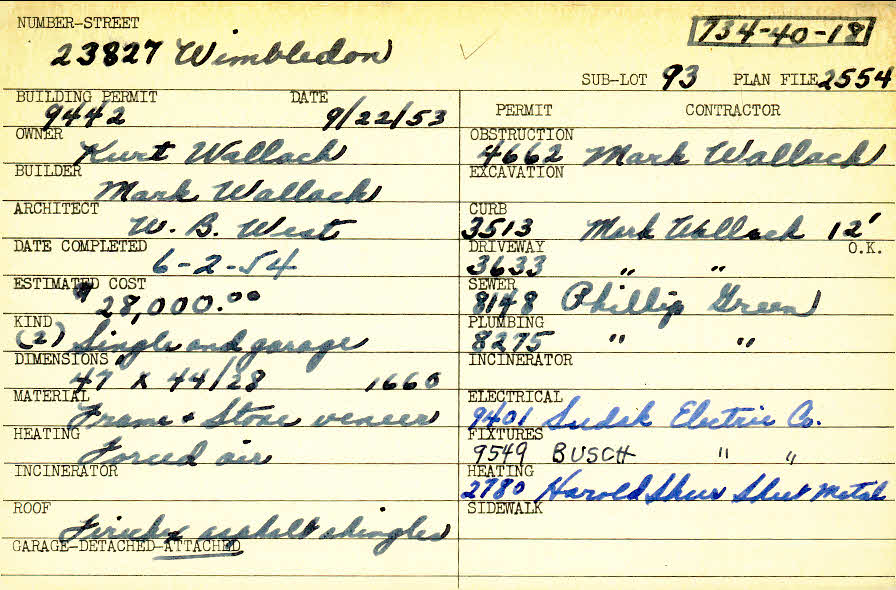 NUMBER-STREET
23827 Wimbledon
734-40-18
SUB-LOT 93 PLAN FILE 2554
BUILDING PERMIT DATE
9442 9/22/53
OWNER
Kurt Wallach
BUILDER
Mark Wallach
ARCHITECT
W. B. West
DATE COMPLETED
6-2-54
ESTIMATED COST
$28,000.00
KIND
(2) Single and garage
DIMENSIONS
47 x 44/28 1660
MATERIAL
Frame + Stone veneer
HEATING
Forced air
INCINERATOR
ROOF
asphalt shingles
GARAGE-DETACHED-ATTACHED
PERMIT CONTRACTOR
OBSTRUCTION
4662 Mark Wallach
EXCAVATION
CURB
3513 Mark Wallach 12'
DRIVEWAY O.K.
3633 " "
SEWER
8148 Phillip Green
PLUMBING
8275 " "
INCINERATOR
ELECTRICAL
9401 Sudak Electric Co.
FIXTURES
9549 BUSCH " "
HEATING
2780 Harold Sheet Metal
SIDEWALK